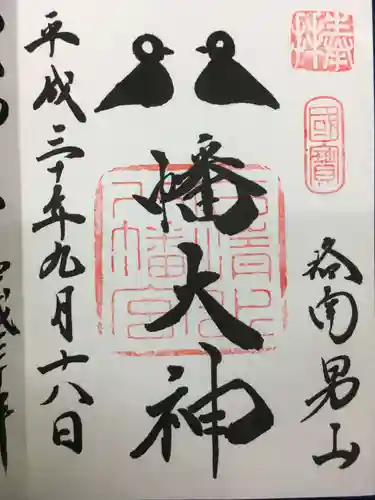 奉拝
國寶
洛南男山
八幡大神
石清水八幡宮
平成三十年九月十八日